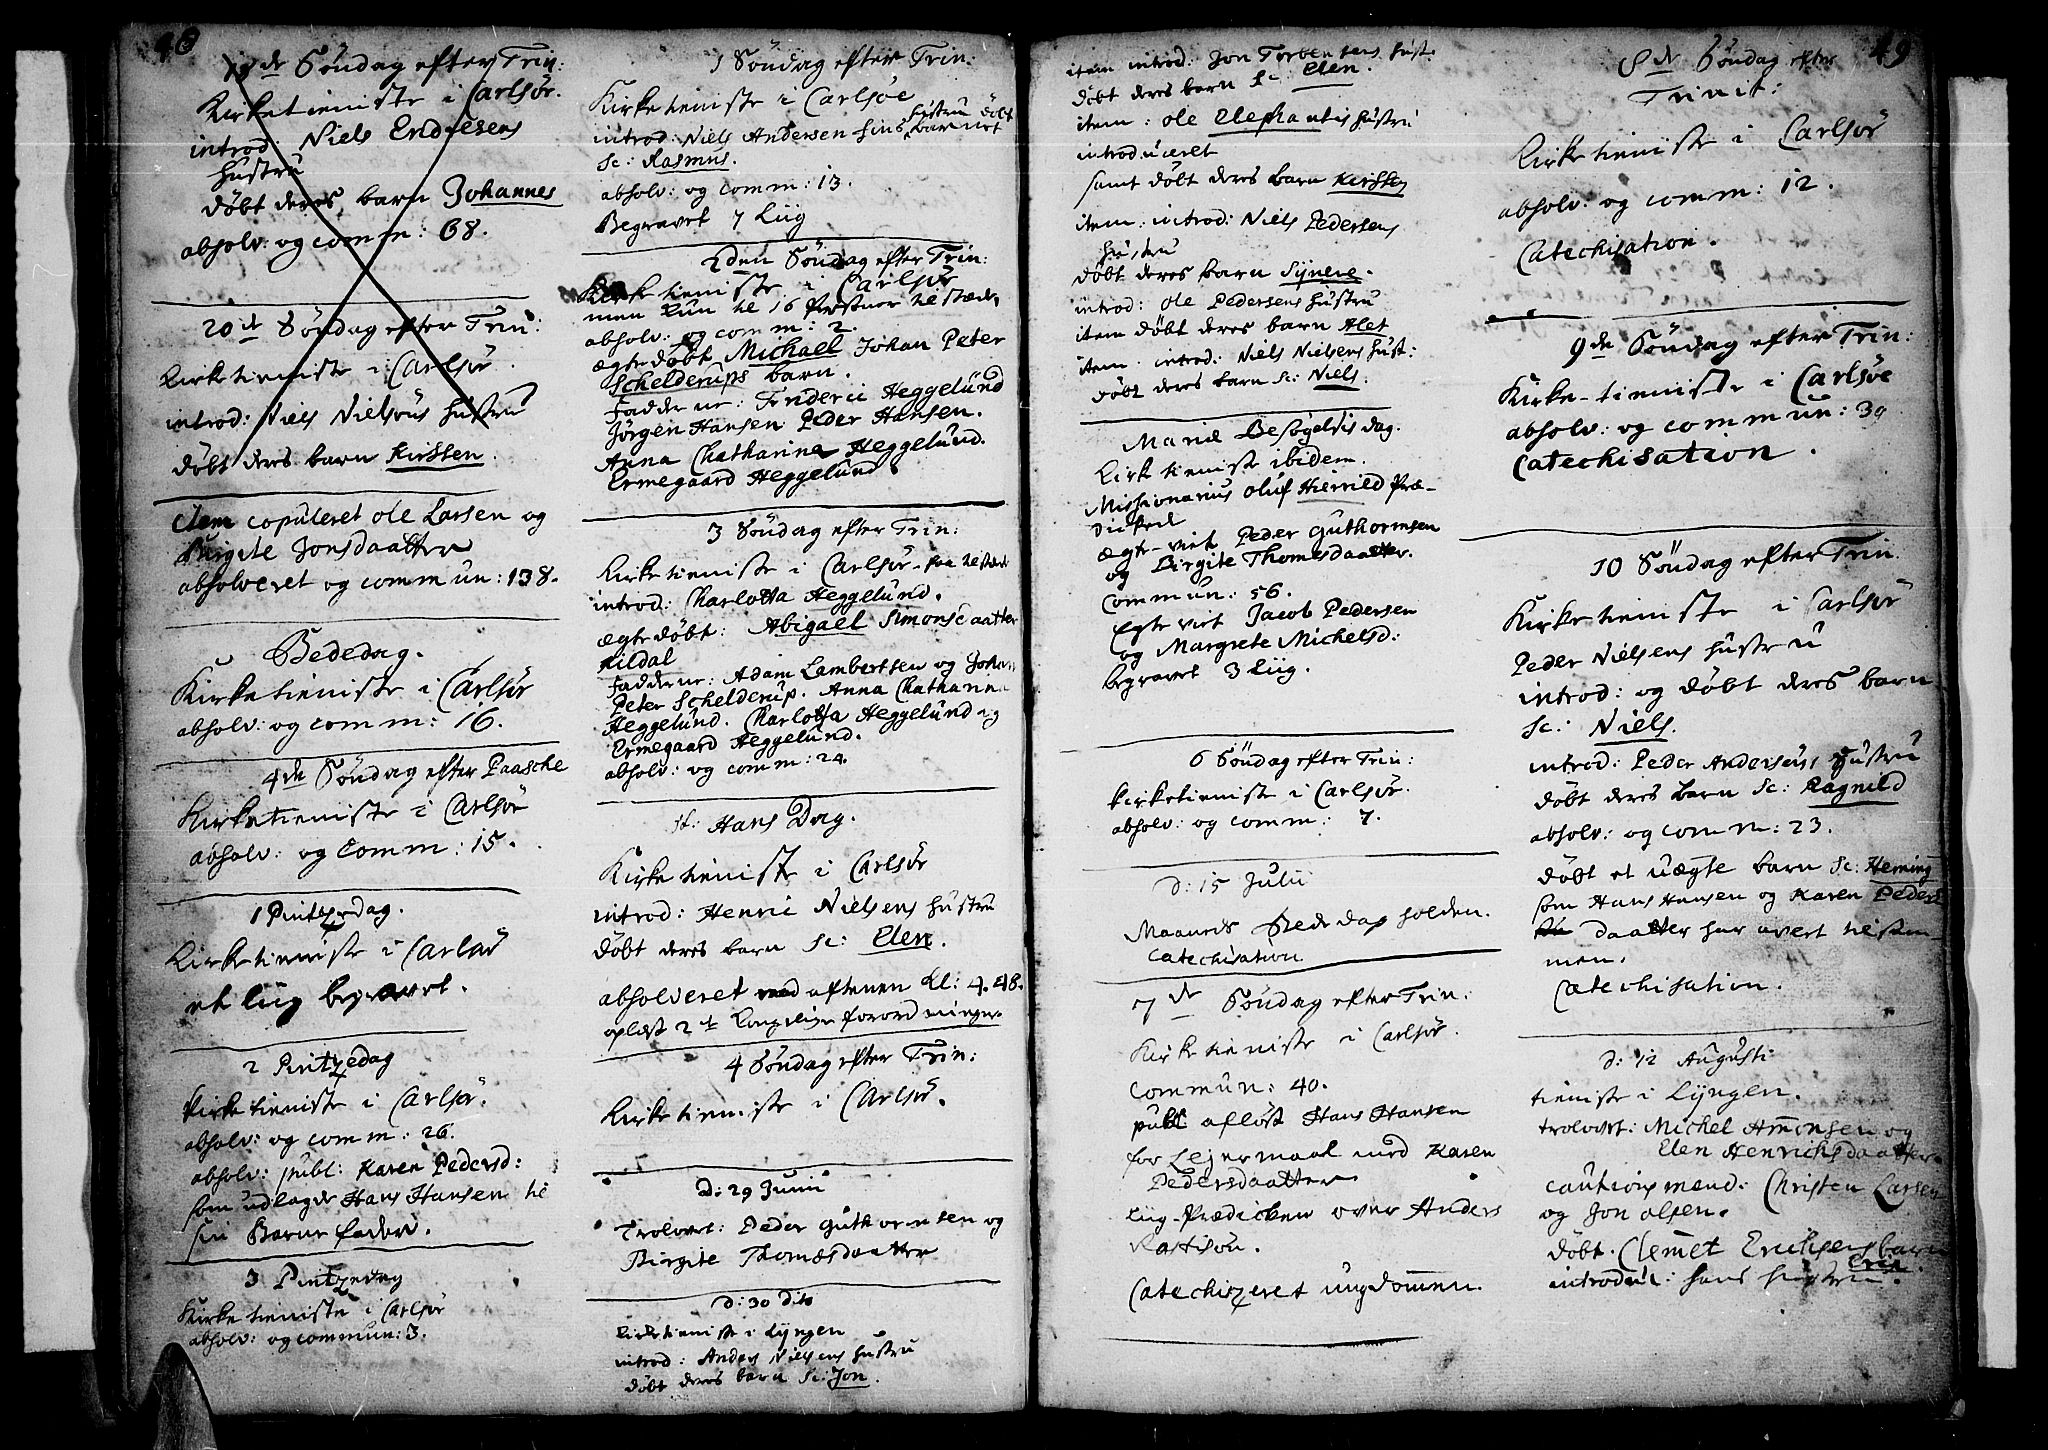 48
19de Söndag efter Trin:
Kirketieniste i Carlsör.
introd: Niels Endresens
hustru
döbt deres barn Johannes
absolv: og comm: 68.
20de Söndag efter Trin:
Kirketieniste i Carlsör.
introd: Niels Nielsöns hustru
döbt deres barn Kirsten.
item copuleret ole Larsen og
Birgite Jonsdaatter
absolveret og commun: 138.
Bededag.
Kirketieniste i Carlsör
absolv: og comm: 16.
4de Söndag efter Paasche
Kirketieniste i Carlsör
absolv: og Comm: 15.
1 Pintzedag.
Kirketieniste i Carlsör
et liig begravet.
2 Pintzedag
Kirketieniste i Carlsör.
absolv: og comm: 26.
absolv: publ: Karen Pedersd:
som udlagde Hans Hansen til
sin Barnefader.
3 Pintzedag
Kirketieniste i Carlsör
absolv: og commun: 3.
1 Söndag efter Trin:
Kirketieniste i Carlsöe
introd: Niels Andersen sins hustru döbt barnet
sc: Rasmus.
absolv: og comm: 13.
Begravet 7 Liig
2den Söndag efter Trin:
Kirketieniste i Carlsör
men kun til 16 Persuner tilstæde,
absolv: og comm: 2.
ægte döbt Michael Johan Peter
Schelderups barn.
Fadderne: Friderii Heggelund
Jörgen Hansen Peder Hansen.
Anna Chatharina Heggelund.
Ermegaard Heggelund.
3 Söndag efter Trin:
Kirketieniste i Carlsör
introd: Charlotta Heggelund.
ægte döbt: Abigael Simonsdaatter
Kildal
Fadderne: Adam Lambertsen og Johan
Peter Schelderup. Anna Chatharina
Heggelund. Charlotta Heggelund og
Ermegaard Heggelund.
absolv: og comm: 24.
St: Hans Dag.
Kirketieniste i Carlsör
introd: Henric Nielsens hustru
döbt deres barn sc: Elen.
absolveret ved aftenen Kl: 4. 48.
oplæst 2de Kongelige forordninger.
4 Söndag efter Trin:
Kirketieniste i Carlsör.
D: 29 Junii
Trolovet: Peder Guthormsen og
Birgite Thomæsdaatter
D: 30 dito
Kirketieniste i Lyngen
introd: Anders Nielsens hustru
döbt deres barn sc: Jon.
49
item introd: Jon Torbensens hust.
döbt deres barn sc: Elen.
item: ole Elephantis hustru
introduceret
samt döbt deres barn Kirsten
item: introd: Niels Pedersens
hustru
döbt deres barn Synere.
introd: ole Pedersens hustru
item döbt deres barn Alet
item: introd: Niels Nielsens hust:
döbt deres barn sc: Niels.
Mariæ Besögelsis dag.
Kirketieniste ibidem.
Missionarius Oluf Hierrild Præ-
dicked
ægte-viet Peder Guthormsen
og Birgite Thomesdaatter.
Commun: 56.
Egteviet Jacob Pedersen
og Margrete Michelsd:
begravet 3 liig.
6 Söndag efter Trin:
Kirketieniste i Carlsör.
absolv: og comm: 7.
D: 15 Julii
Maaneds Bededag holden.
Catechisation
7de Söndag efter Trin:
Kirketieniste i Carlsör.
Commun: 40.
publ aflöst Hans Hansen
for Lejermaal med Karen
Pedersdaatter
Liig-Prædicken over Anders
Catechizeret ungdommen.
8de Söndag efter
Trinit:
Kirketieniste i Carlsör
absolv: og comm: 12.
Catechisation.
9de Söndag efter Trin:
Kirke-tieniste i Carlsöe
absolv: og commun: 39
Catechisation.
10 Söndag efter Trin.
Kirketieniste i Carlsör
Peder Nielsens hustru
introd: og döbt deres barn
sc: Niels.
introd: Peder Andersöns hustru
döbt deres barn sc: Ragnild
absolv: og comm: 23.
döbt et uægte barn sc: Heming
som Hans Hansen og Karen Peders
daatter har avlet tilsam-
men.
Catechisation.
D: 12 Augusti
tieniste i Lyngen.
trolovet: Michel Amonsen og
Elen Henrichsdaatter.
cautionsmænd: Christen Larsen
og Jon olsen.
döbt. Clemet Erichsens barn
Eric.
introduc: hans hustru.